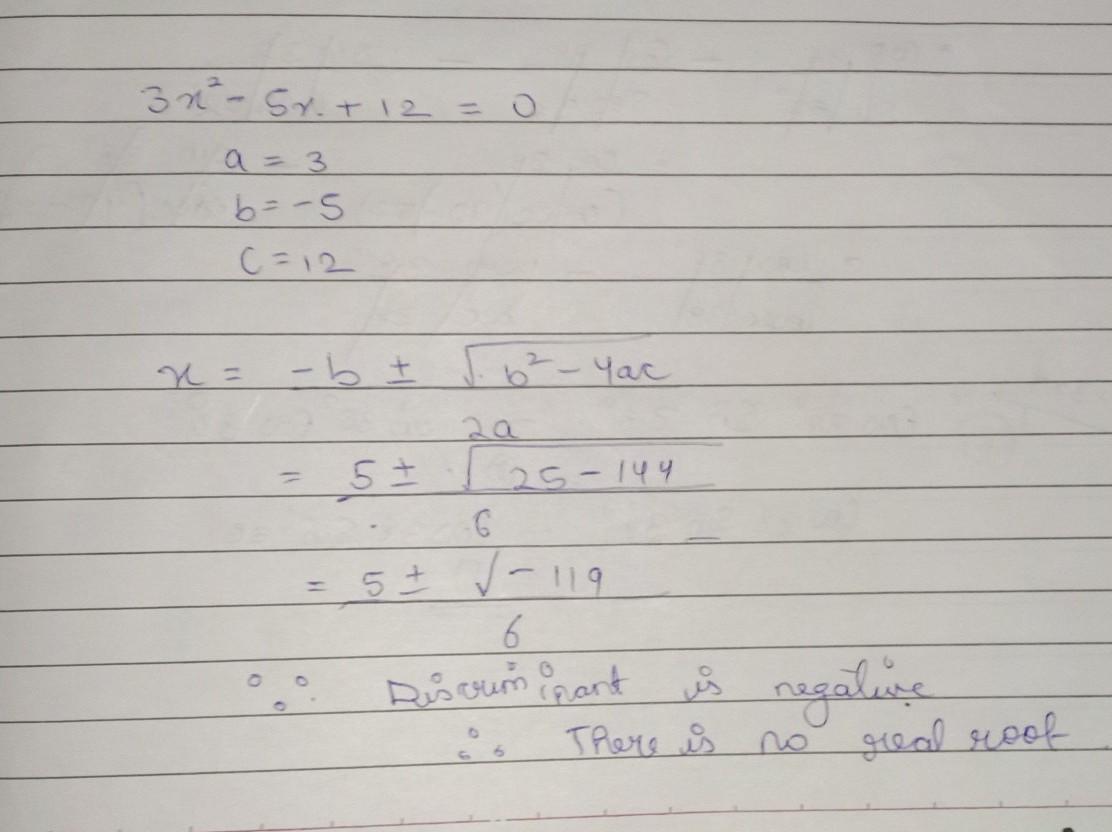 3x² - 5x + 12 = 0
a = 3
b = -5
c = 12
x = -b ± √b² - 4ac
2a
= 5 ± √25 - 144
6
= 5 ± √-119
6
∵ Discriminant is negative
∴ There is no real root